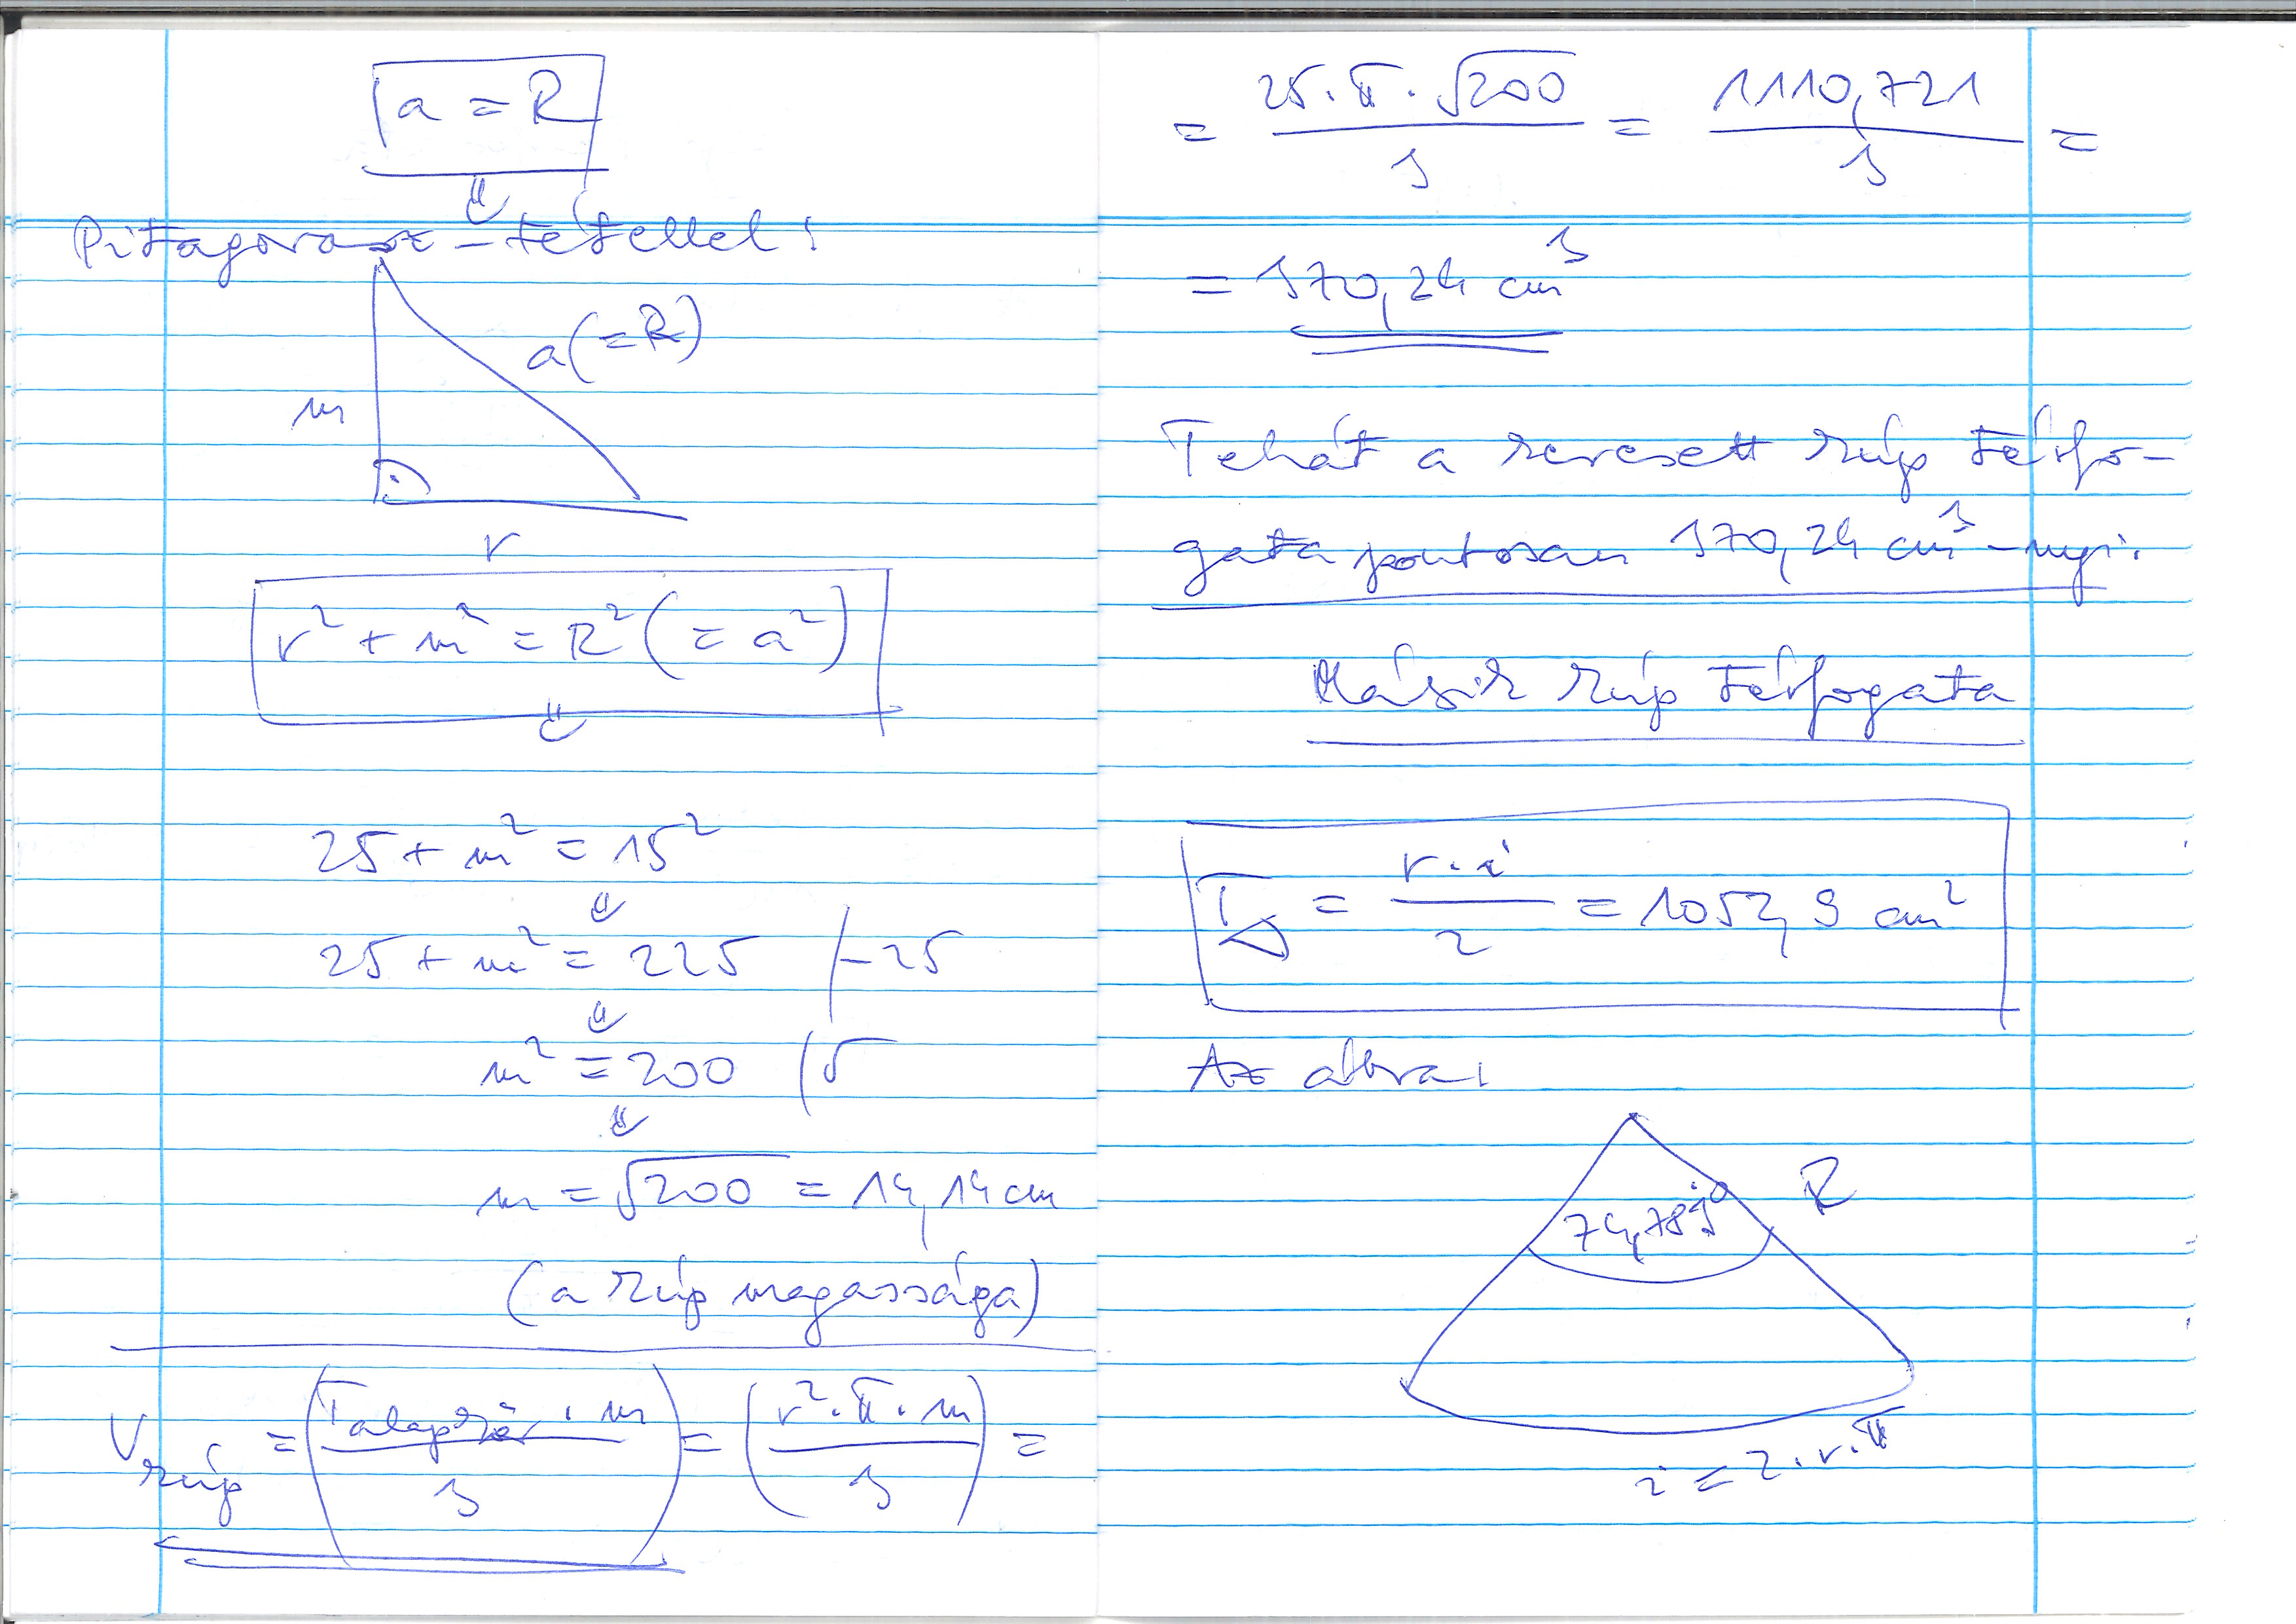 a = R
⇓
Pitagorasz-tétellel:
a(=R)
m
r
r² + m² = R² (= a²)
⇓
25 + m² = 15²
⇓
25 + m² = 225 /-25
⇓
m² = 200 /√
⇓
m = √200 = 14,14 cm
(a kúp magassága)
V kúp = (T alapkör · m / 3) = (r² · π · m / 3) =
= 25 · π · √200 / 3 = 1110,721 / 3 =
= 370,24 cm³
Tehát a keresett kúp térfo-
gata pontosan 370,24 cm³-nyi.
Másik kúp térfogata
T = r · i / 2 = 1052,9 cm²
Az ábra:
74,789°
R
i = 2 · r · π